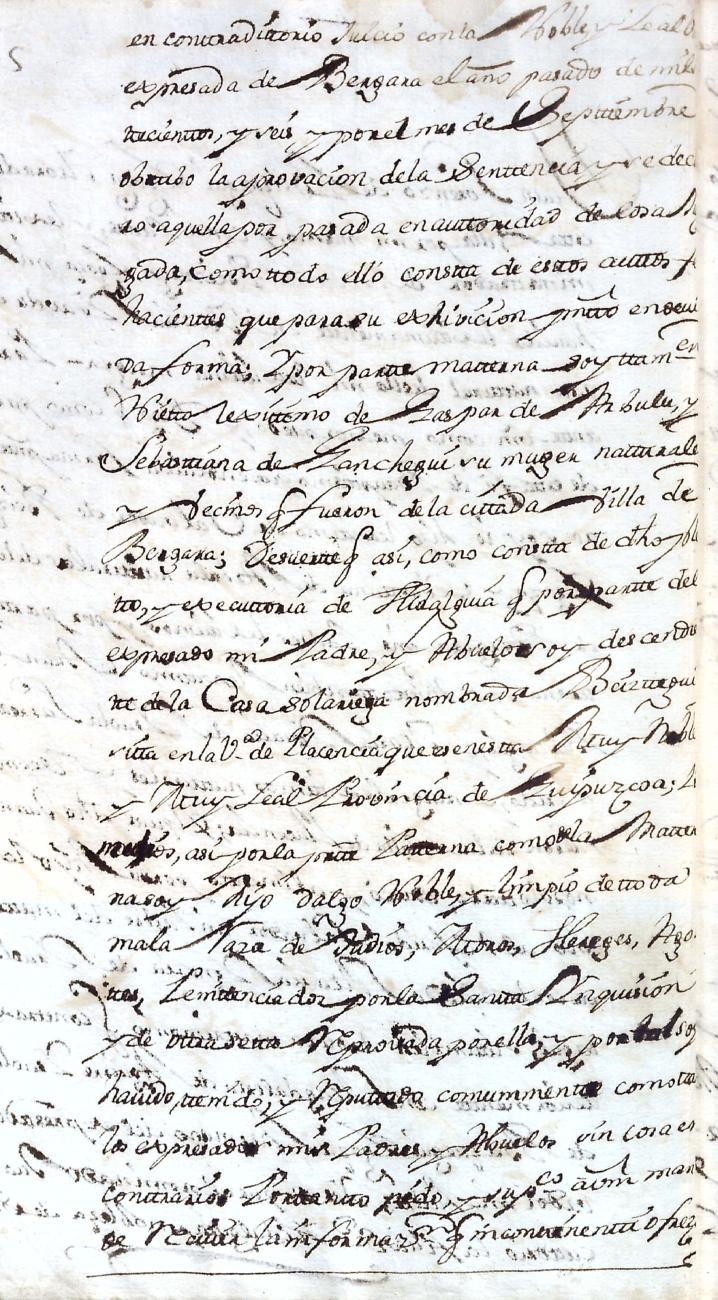 en contradittorio Juicio con la Noble y Leal
expresada de Bergara el año pasado de mil
ttecientos, y seis y por el mes de Septtiembre
obtubo la aprovacion de la Senttencia y se dec
ro aquella por pasada en auttoridad de Cosa
gada, como ttodo ello constta de esttos auttos
hacientes que para su exhivicion pntto en devi
da forma; Y por partte matterna soy ttamen
Nietto lexittimo de Gaspar de Arbulu, y
Sebasttiana de Gancheguí su muger natturale
y Vecinos q fueron de la cittada Villa de
Bergara; Desuertte q así, como constta de dho
tto, y executtoria de Hidalguia q por partte del
expresado mi Padre, y Abuelo soy descendi
tte de la Casa solariega nombrada Beizttegui
sitta en la Va. de Placencia que es en estta Muy Nobl
y Muy Leal Provincia de Guipuzcoa;
así por la partte Patterna como de la Matter
na soy Hijo Dalgo Noble, y limpio de ttoda
mala Raza de Judios, Moros, Hereges, Ago
ttes, Penittenciados por la Santta Ynquisision
y de ottra sectta Reprovada por ella, y por tal soy
havido, ttenido, y Reputtado comunmentte como tta
los expresados mis Padres y Abuelos sin cosa en
conttrario: Portantto pido y supco. a vm man
de Recivir la informazon q incontinentti ofrez